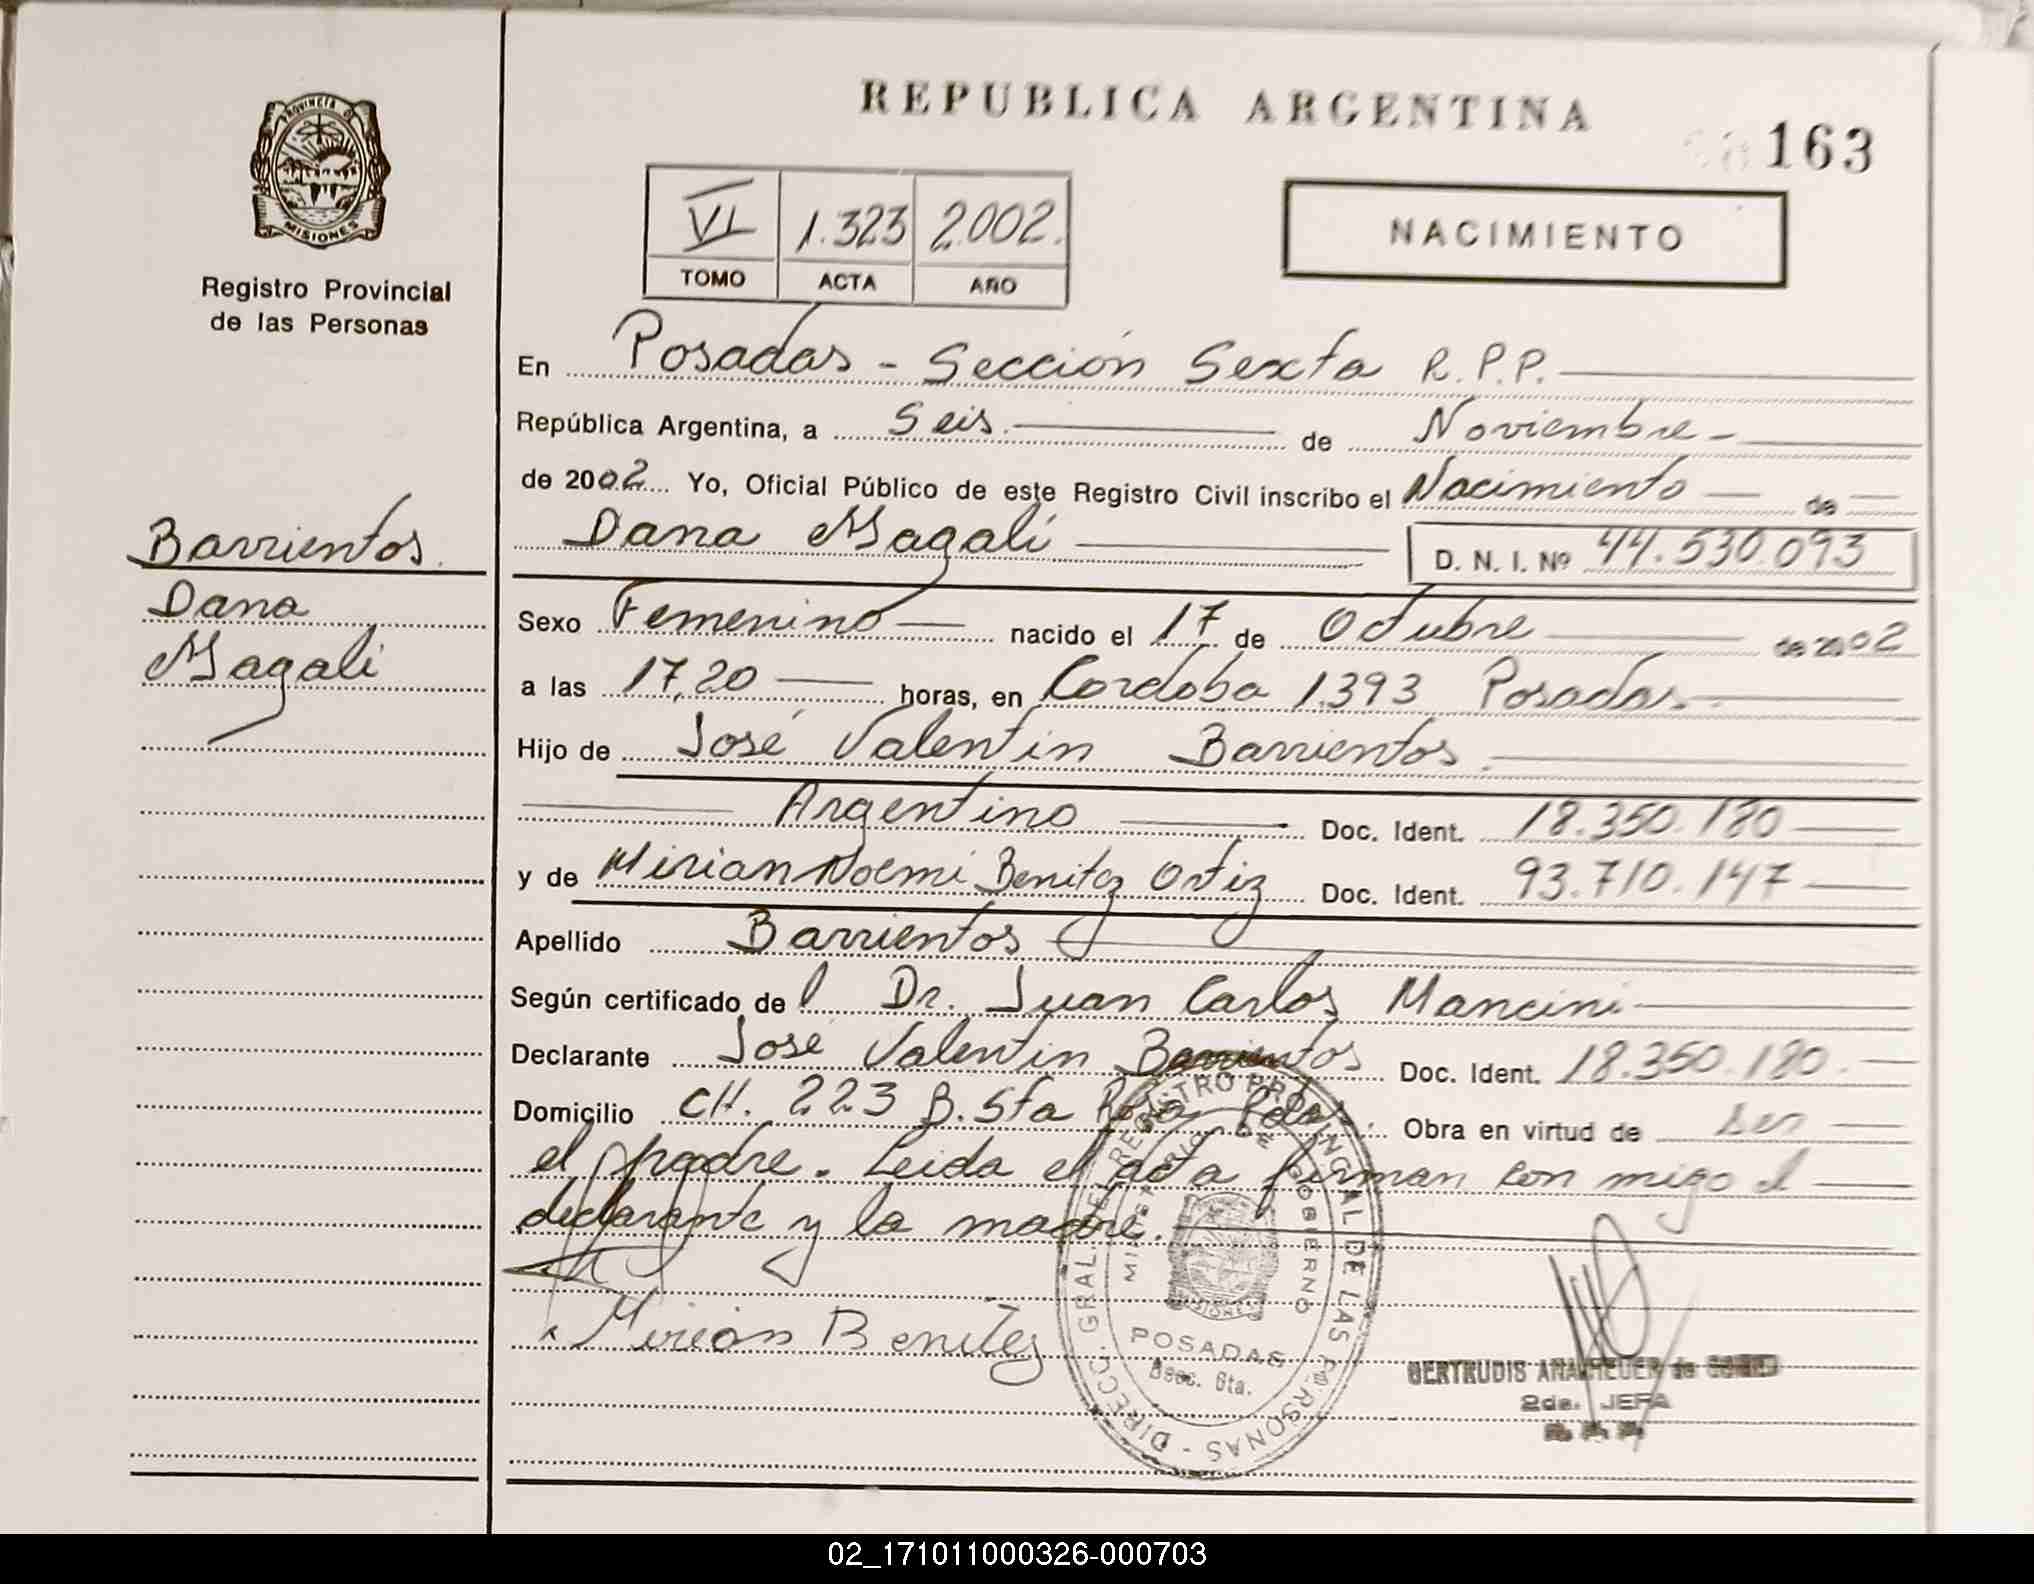 REPUBLICA ARGENTINA
163
PROVINCIA DE
MISIONES
Registro Provincial
de las Personas
VI 1.323 2.002.
TOMO ACTA AÑO
NACIMIENTO
En Posadas - Sección Sexta R.P.P.
República Argentina, a Seis. de Noviembre -
de 2002 Yo, Oficial Público de este Registro Civil inscribo el Nacimiento de
Dana Magalí D. N. I. Nº 44.530.093
Barrientos.
Dana
Magalí
Sexo Femenino nacido el 17 de Octubre de 2002
a las 17,20 horas, en Cordoba 1.393 Posadas.
Hijo de José Valentín Barrientos.
Argentino Doc. Ident. 18.350.180
y de Mirian Noemi Benitez Ortiz Doc. Ident. 93.710.147
Apellido Barrientos
Según certificado de l Dr. Juan Carlos Mancini
Declarante José Valentin Barrientos Doc. Ident. 18.350.180.
Domicilio CH. 223 B. Sta Rosa Pdas. Obra en virtud de ser
el padre. Leida el acta firman con migo el
declarante y la madre.
Mirian Benitez
DIRECC. GRAL. DEL REGISTRO PROVINCIAL DE LAS PERSONAS -
MINISTERIO DE GOBIERNO
MISIONES
POSADAS
Secc. 6ta.
GERTRUDIS ANA HEUER de
2da. JEFA
02_171011000326-000703